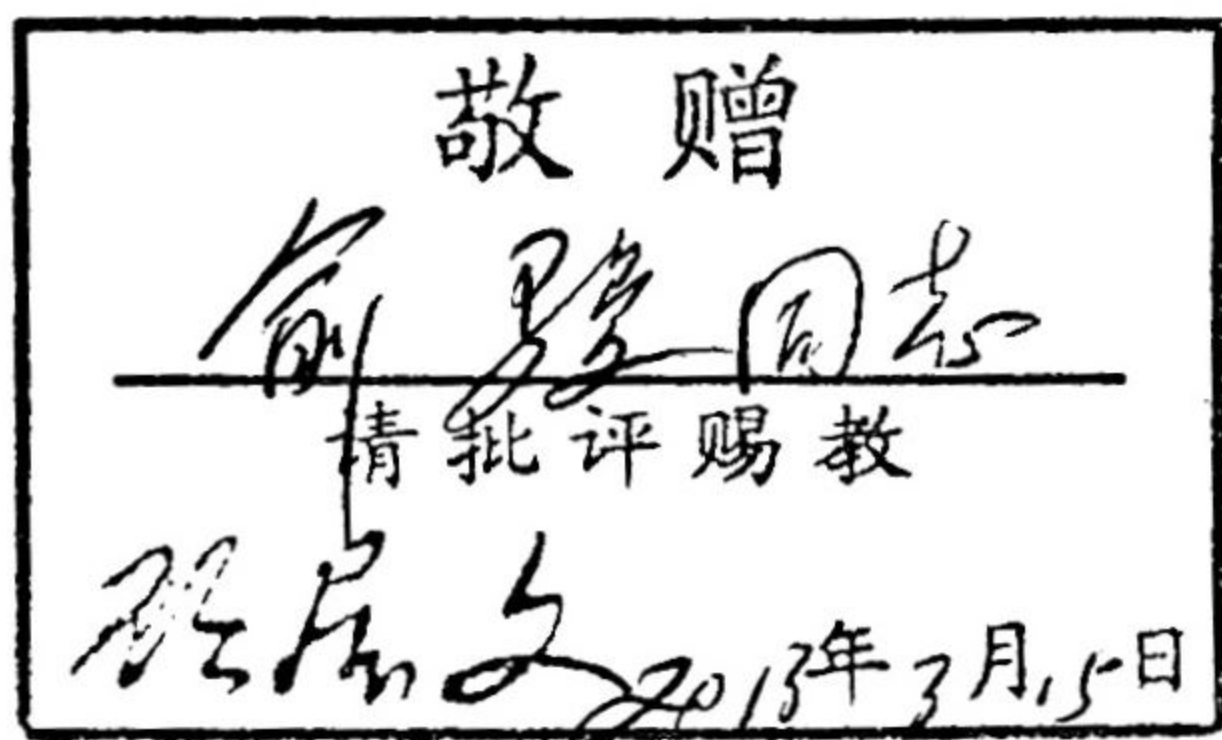 敬赠
俞骏同志
请批评赐教
文 2013年3月15日